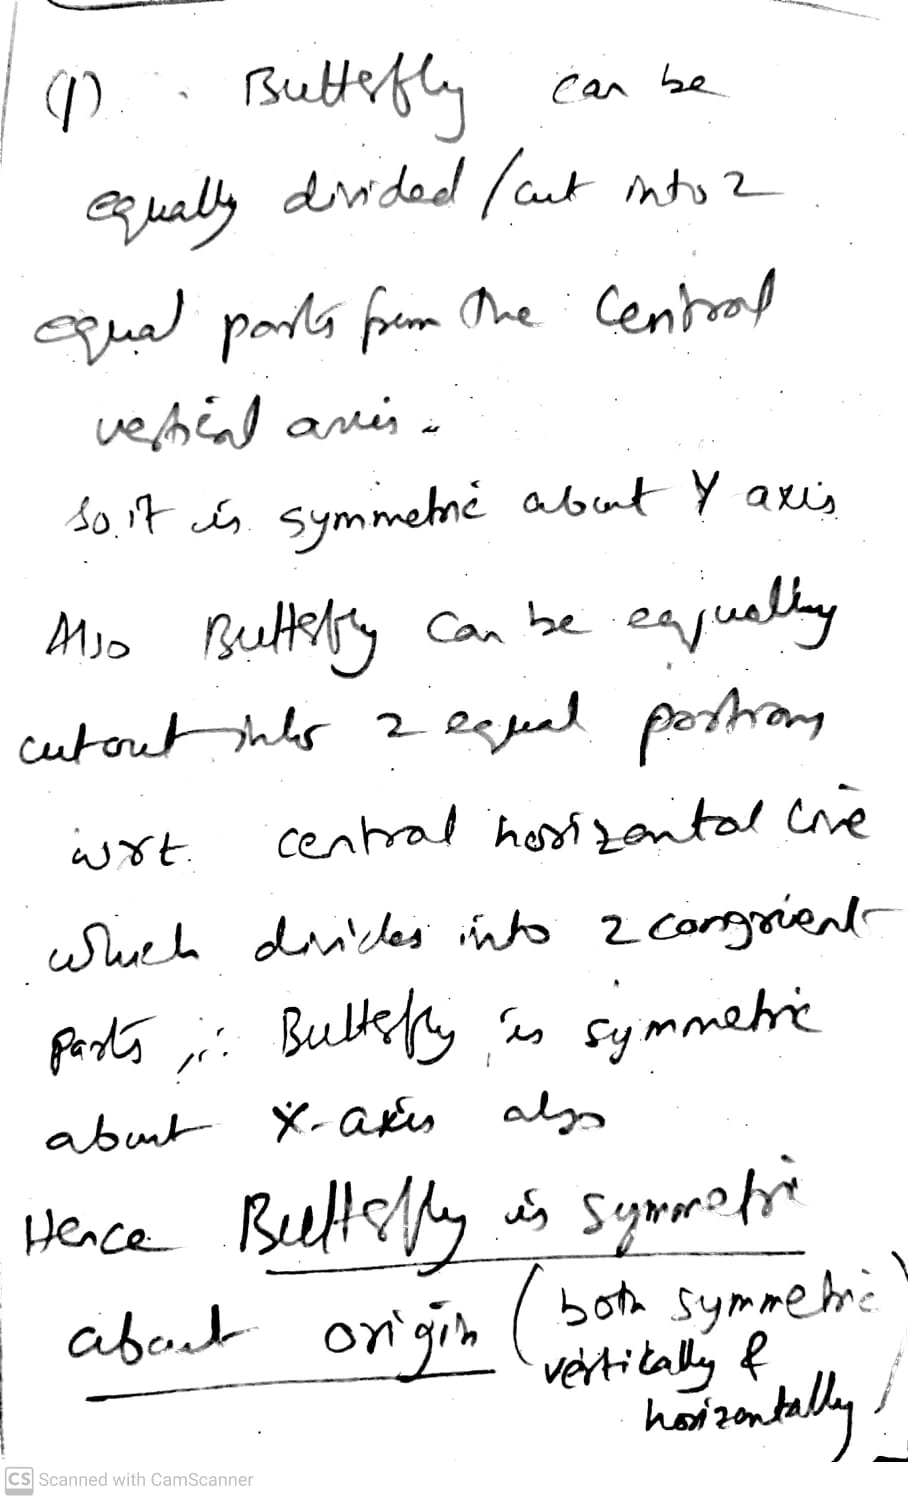 (1). Butterfly can be
equally divided / cut into 2
equal parts from the Central
vertical axis.
So it is symmetric about Y axis
Also Butterfly can be equally
cutout into 2 equal portions
wrt. central horizontal line
which divides into 2 congruent
parts, ∴ Butterfly is symmetric
about X-axis also
Hence Butterfly is symmetric
about origin (both symmetric
vertically &
horizontally)
CS Scanned with CamScanner